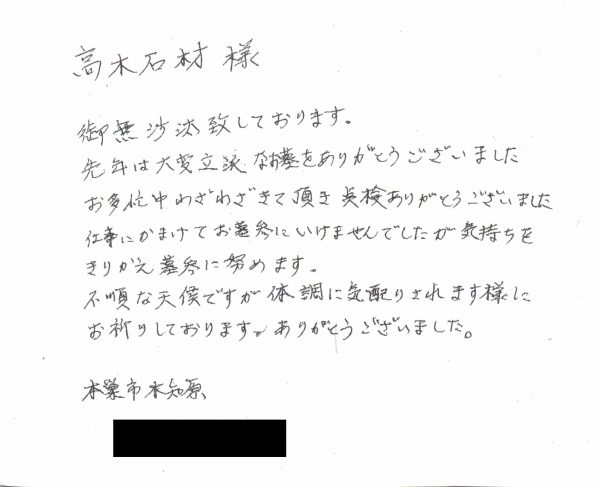 高木石材 様
御無沙汰致しております。
先年は大変立派なお墓をありがとうございました
お多忙中わざわざきて頂き点検ありがとうございました
仕事にかまけてお墓参にいけませんでしたが気持ちを
きりかえ墓参に努めます。
不順な天候ですが体調に気配りされます様に
お祈りしております。ありがとうございました。
本巣市木知原